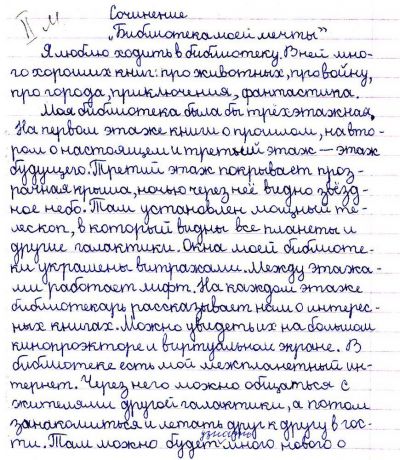 II м
Сочинение
„Библиотека моей мечты"
Я люблю ходить в библиотеку. В ней мно-
го хороших книг: про животных, про войну,
про города, приключения, фантастика.
Моя библиотека была бы трёхэтажная.
На первом этаже книги о прошлом, на вто-
ром о настоящем и третьей этаж — этаж
будущего. Третий этаж покрывает проз-
рачная крыша, ночью через неё видно звёзд-
ное небо. Там установлен мощный те-
лескоп, в который видны все планеты и
другие галактики. Окна моей библиоте-
ки украшены витражами. Между этажа-
ми работает лифт. На каждом этаже
библиотекарь рассказывает нам о интерес-
ных книгах. Можно увидеть их на большом
кинопроэкторе и виртуальном экране. В
библиотеке есть мой межпланетный ин-
тернет. Через него можно общаться с
жителями другой галактики, а потом
занакомиться и летать друг к другу в гос-
ти. Там можно будет узнать много нового о